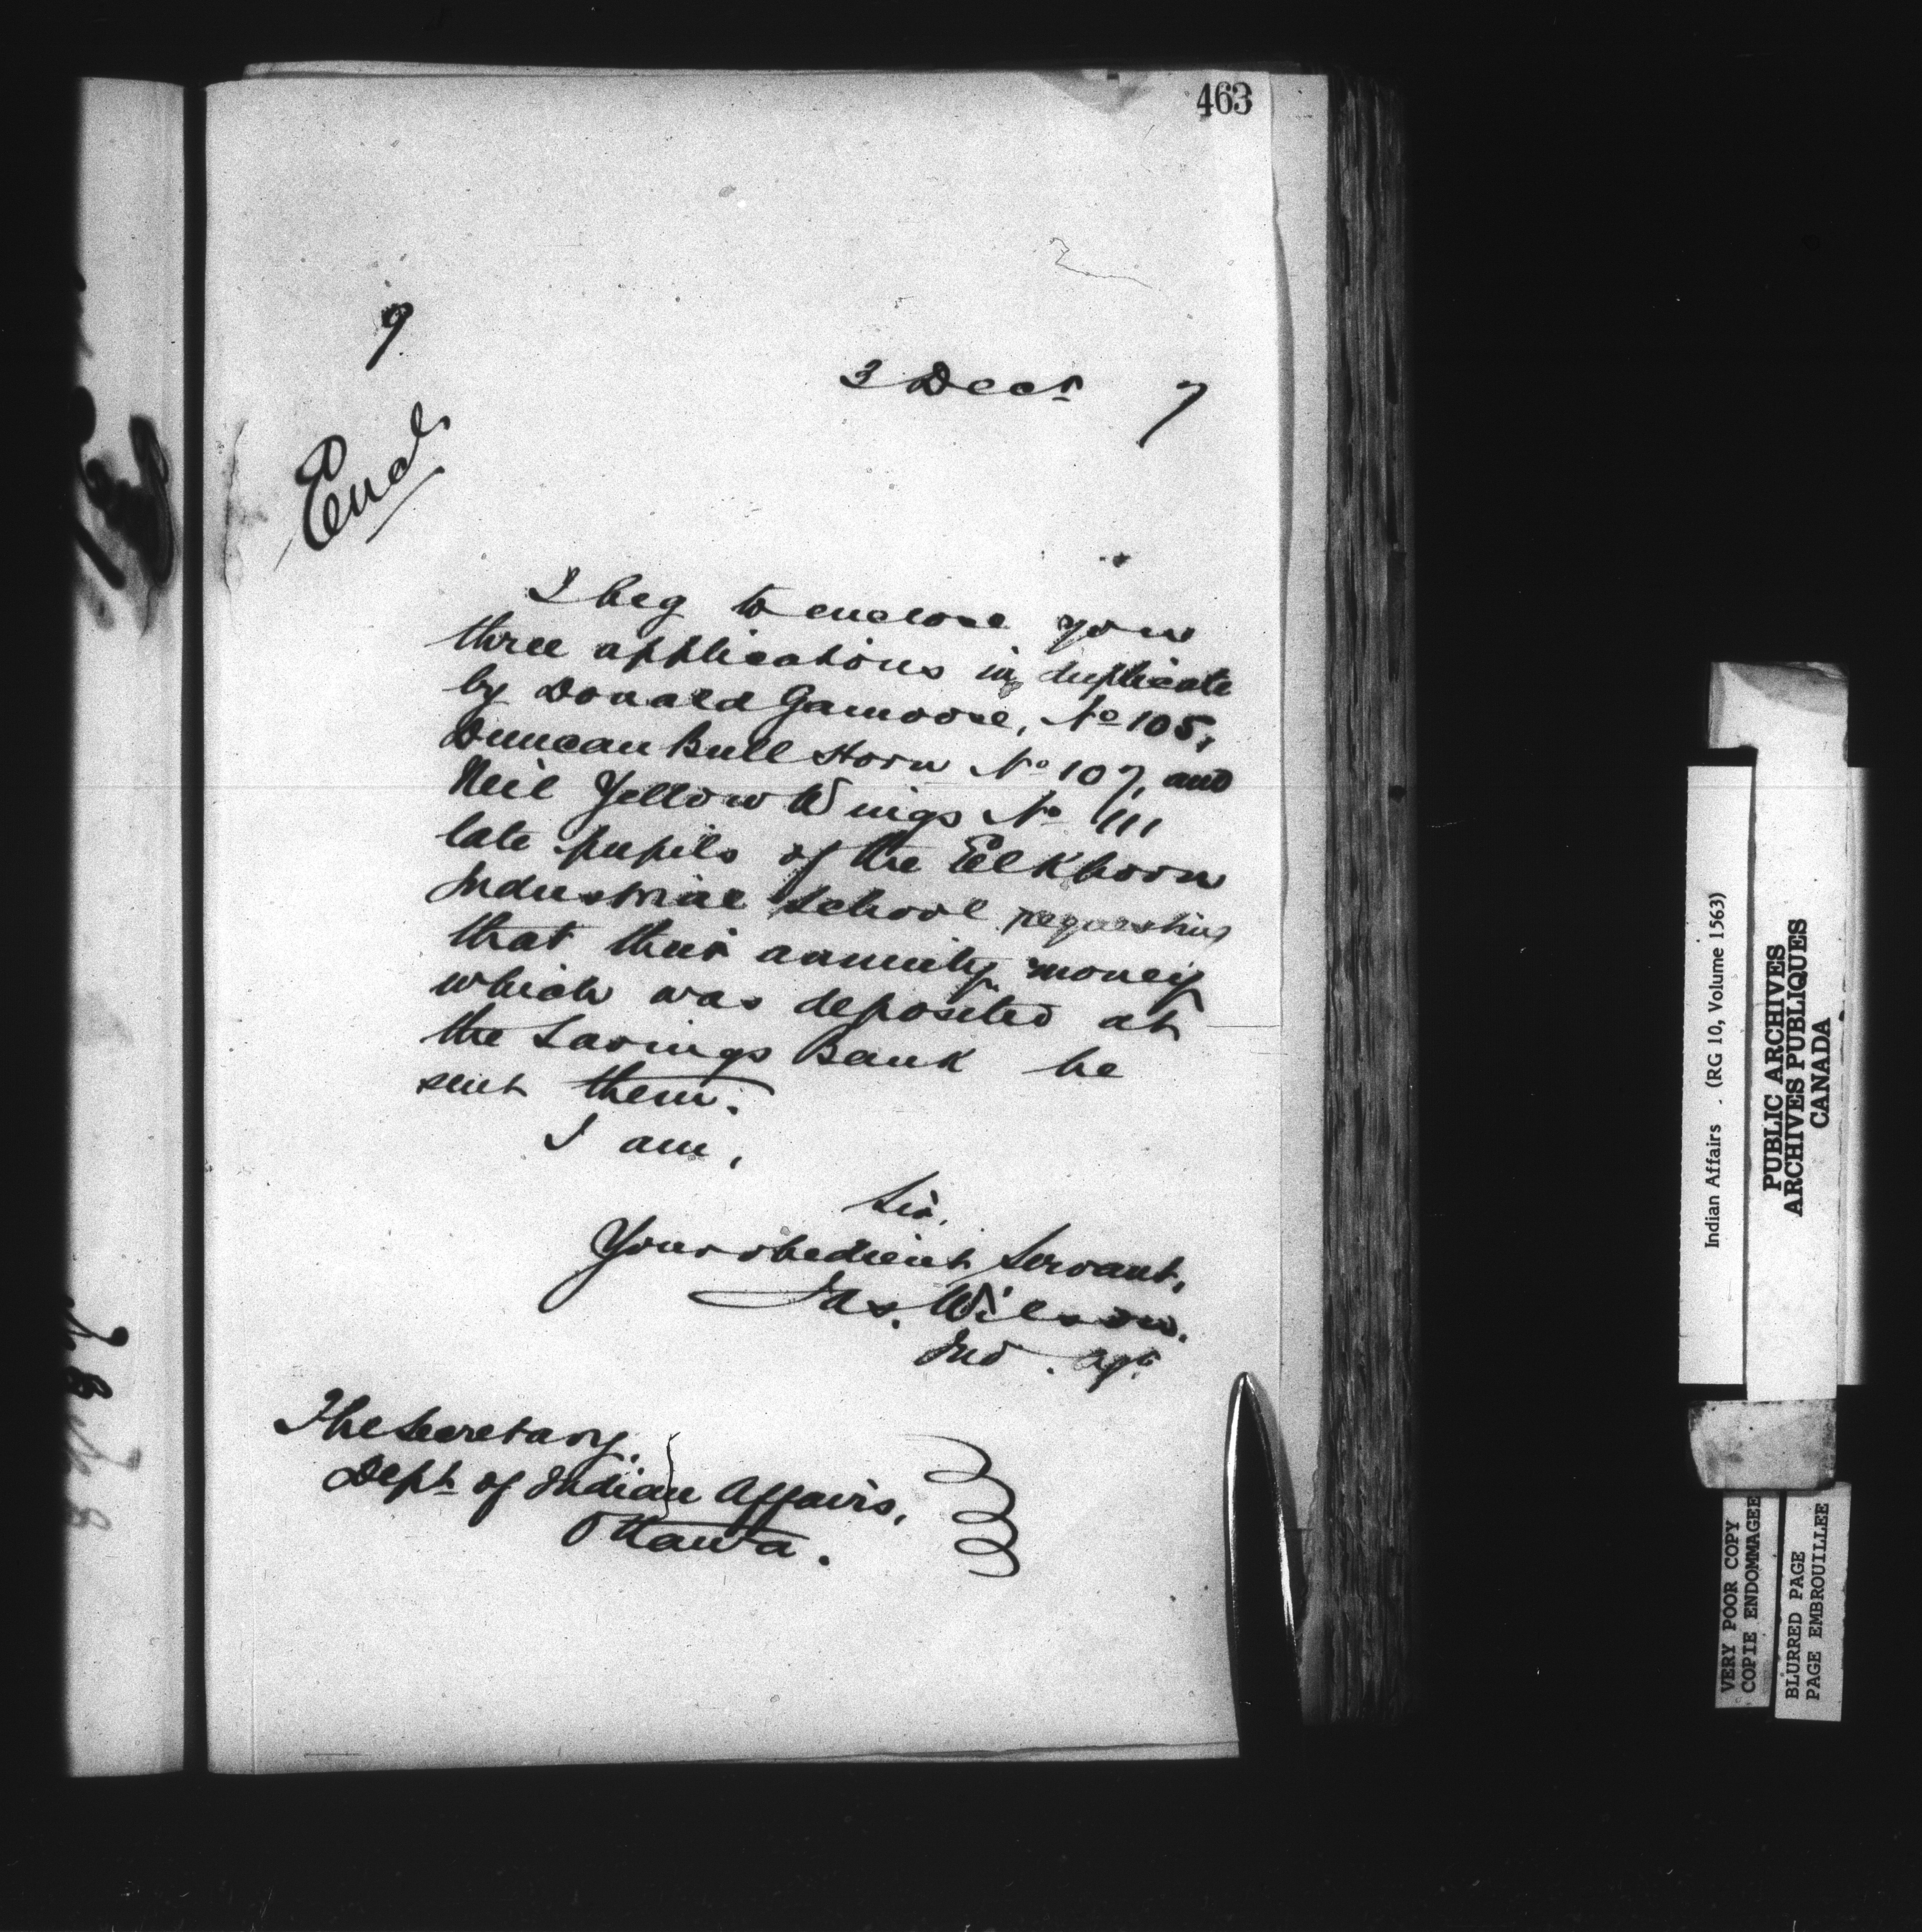 463
9
3 Decr 7
Encl.
I beg to enclose you
three applications in duplicate
by Donald Gamoose, No 105,
Duncan Bull Horn No 107, and
Neil Yellow Wings No 111
late pupils of the Elkhorn
Industrial School requesting
that their annuity money
which was deposited at
the Savings Bank be
sent them.
I am,
Sir,
Your obedient Servant,
Jas. Wilson.
Ind. Agt.
The Secretary.
Dept of Indian Affairs,
Ottawa.
Indian Affairs . (RG 10, Volume 1563)
PUBLIC ARCHIVES
ARCHIVES PUBLIQUES
CANADA
VERY POOR COPY
COPIE ENDOMMAGEE
BLURRED PAGE
PAGE EMBROUILLEE